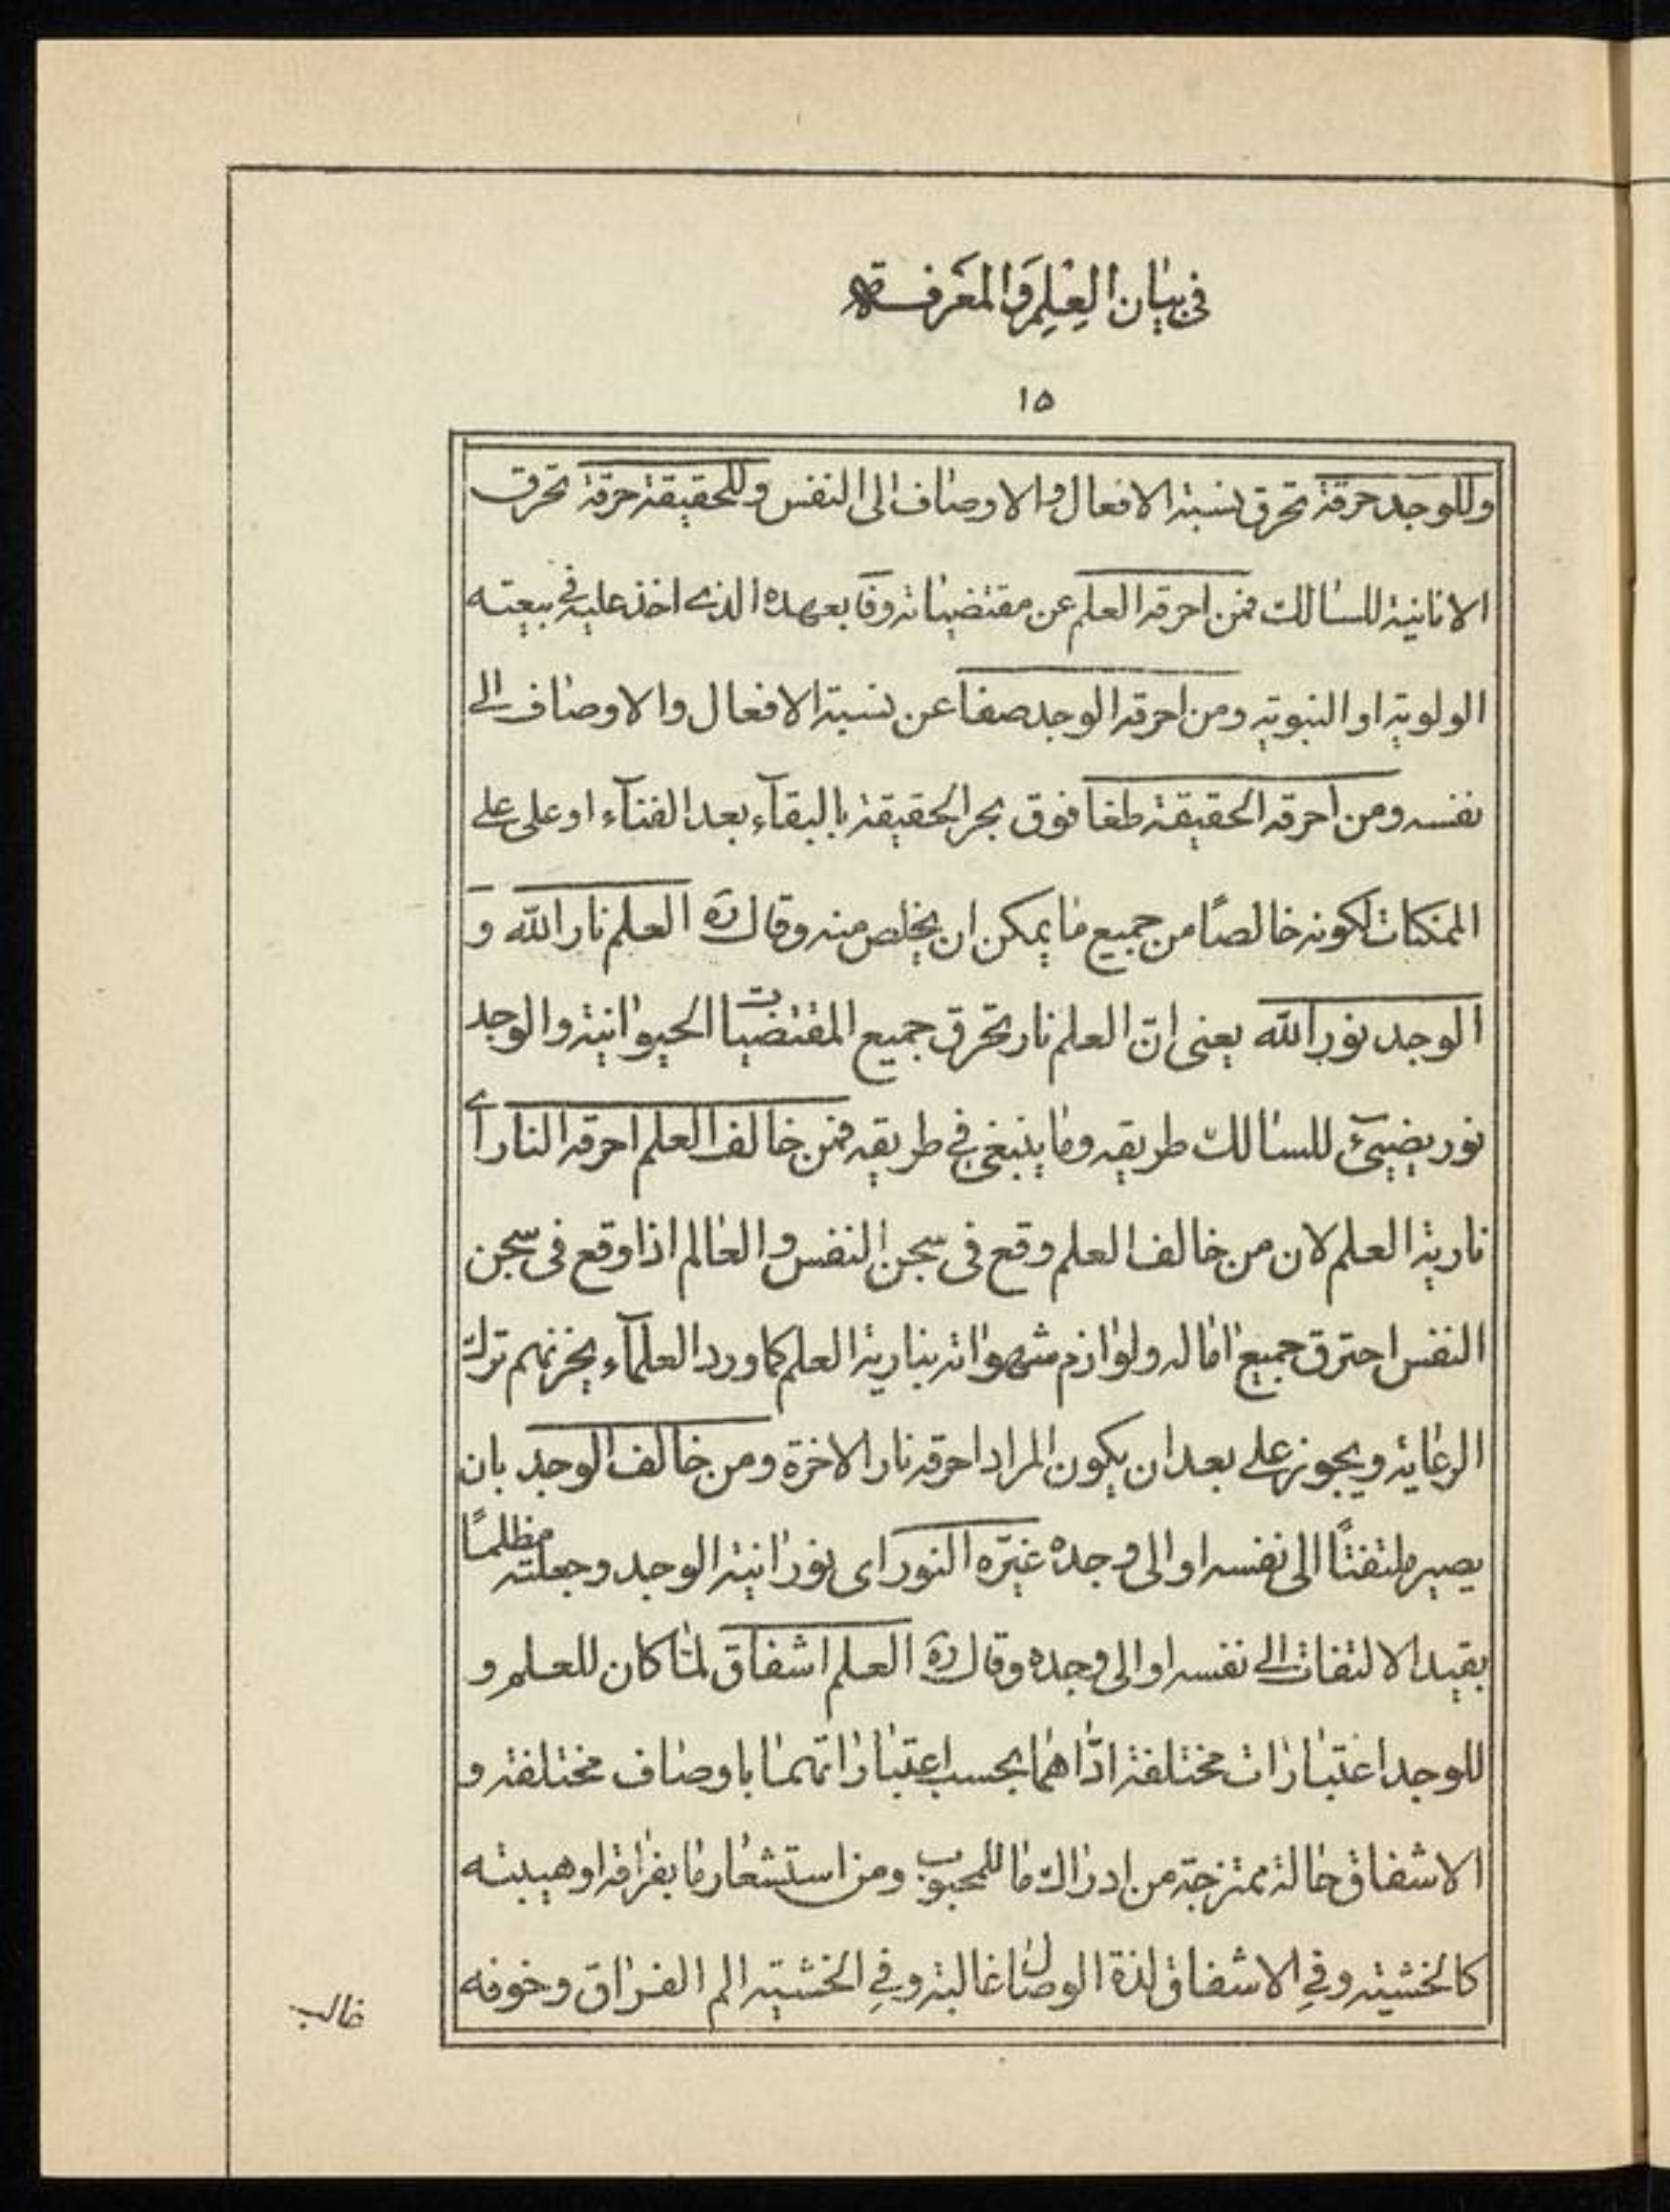 فی بیان العلم والمعرفة
۱۵
وللوجد حرقة تحرق نسبة الافعال والاوصاف الی النفس وللحقیقة حرقة تحرق
الانانیة للسالك فمن احرقه العلم عن مقتضیاته وفا بعهده الذی اخذ علیه فی بیعته
الولویة او النبویة ومن احرقه الوجد صفا عن نسبة الافعال والاوصاف الی
نفسه ومن احرقه الحقیقة طفا فوق بحر الحقیقة بالبقآء بعد الفنآء او علی علی
الممکنات لکونه خالصًا من جمیع ما یمکن ان یخلص منه وقال ره العلم نار الله و
الوجد نور الله یعنی انّ العلم نار تحرق جمیع المقتضیات الحیوانیة والوجد
نور یضیئ للسالك طریقه وما ینبغی فی طریقه فمن خالف العلم احرقه النار ای
ناریة العلم لان من خالف العلم وقع فی سجن النفس والعالم اذا وقع فی سجن
النفس احترق جمیع اماله ولوازم شهواته بناریة العلم کما ورد العلمآء یحزنهم ترك
الرعایة ویجوز علی بعد ان یکون المراد احرقه نار الاخرة ومن خالف الوجد بان
یصیر ملتفتًا الی نفسه او الی وجده غیّره النور ای نورانیة الوجد وجعلته مظلمًا
بقید الالتفات الی نفسه او الی وجده وقال ره العلم اشفاق لمّا کان للعلم و
للوجد اعتبارات مختلفة ادّاهما بحسب اعتباراتهما باوصاف مختلفة و
الاشفاق حالة ممتزجة من ادراك ما للمحبوب ومن استشعار ما بفراقه او هیبته
کالخشیة وفی الاشفاق لذة الوصال غالبة وفی الخشیة الم الفراق وخوفه
غالب